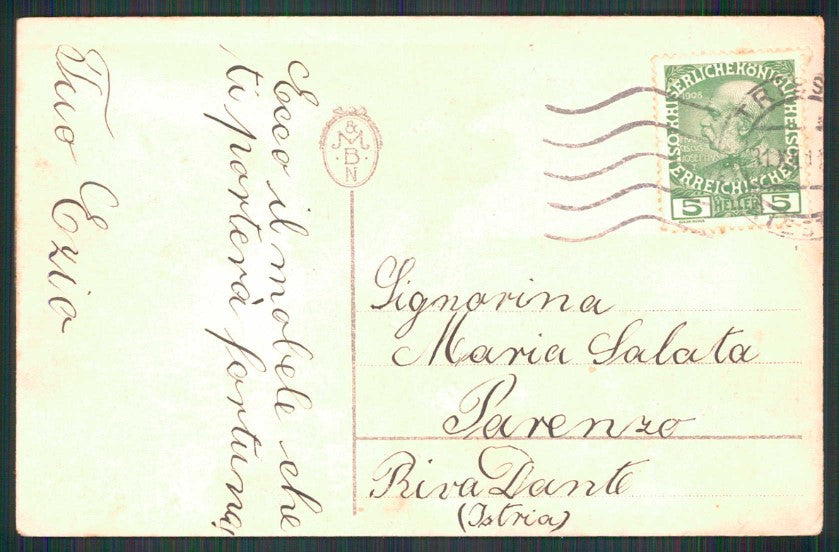 Ecco il mobele che
ti porterà fortuna!
Tuo Ezio
M & M
B
N
KAISERLICHE KÖNIGLICHE
1908
ÖSTERREICHISCHE
5 HELLER 5
TRIES
Signorina
Maria Salata
Parenzo
Riva Dante
(Istria)